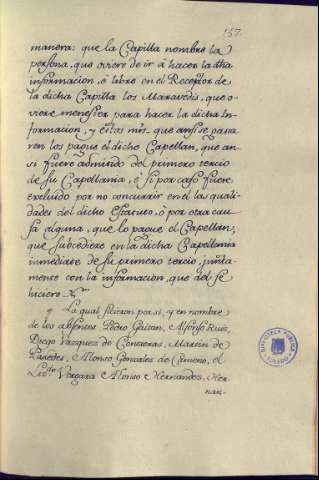 157.
manera: que la Capilla nombre la
persona, que oviere de ir à hacer la dha
informacion, è libre en el Receptor de
la dicha Capilla los Maravedis, que o-
viere menester para hacer la dicha In-
formacion, y estos mrs. que ansi se pasa
ren los pague el dicho Capellan, que an-
si fuere admitido del primero tercio
de su Capellania, è si por caso fuere
excluido por no concurrir en el las quali-
dades del dicho Estatuto, ò por otra cau
sa alguna, que lo pague el Capellan,
que subcediere en la dicha Capellania
inmediate de su primero tercio, junta-
mente con la informacion, que del se
hiciere
y La qual ficieron por si, y en nombre
de los absentes Pedro Gaitan, Alfonso Ruiz,
Diego Vazquez de Contreras, Martin de
Paredes, Alonso Gonzales de Cisneros, el
Lcdo. Vergara Alonso Hernandes, Her-
nan-
BIBLIOTECA PUBLICA
TOLEDO